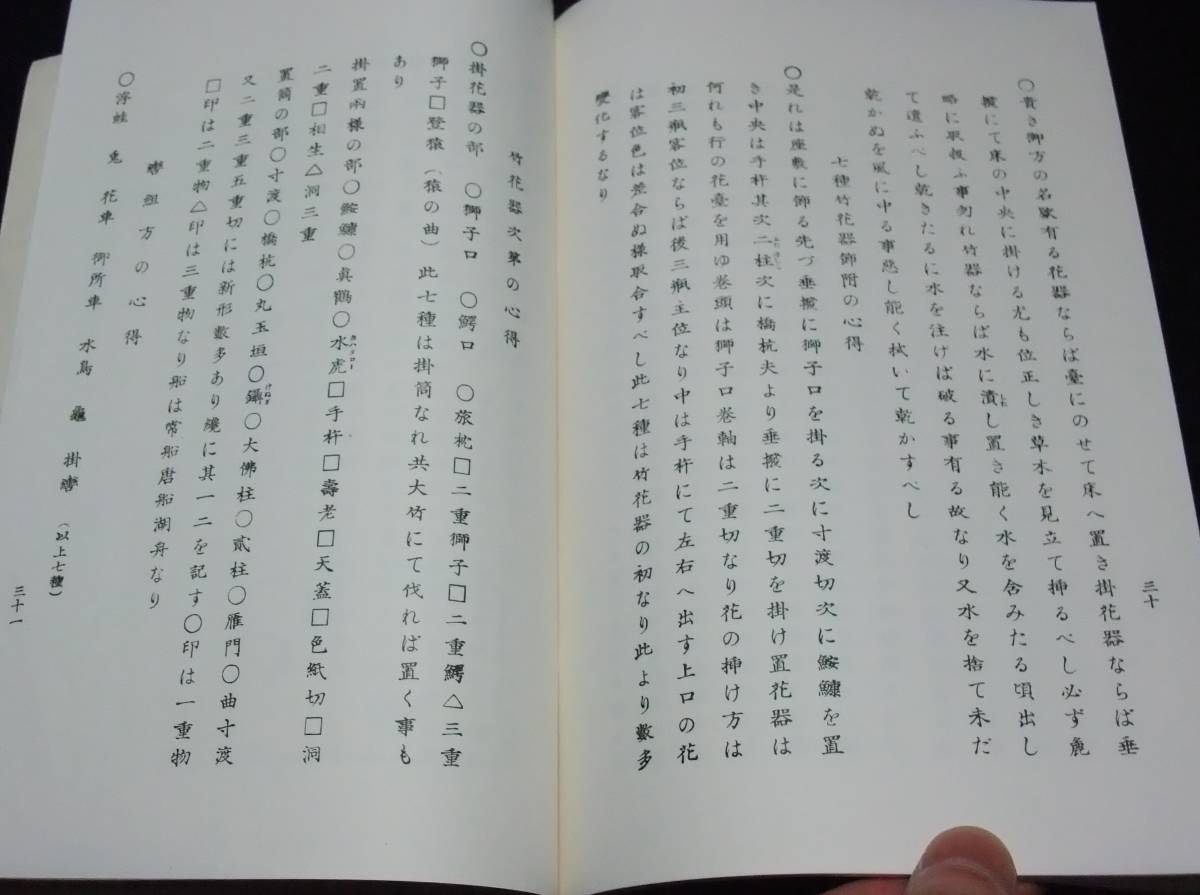 三十
〇貴き御方の名歌有る花器ならば臺にのせて床へ置き掛花器ならば垂
撥にて床の中央に掛ける尤も位正しき草木を見立て挿るべし必ず麁
略に取扱ふ事勿れ竹器ならば水に漬し置き能く水を含みたる頃出し
て遣ふべし乾きたるに水を注げば破る事有る故なり又水を捨て未だ
乾かぬを風に中る事惡し能く拭いて乾かすべし
七種竹花器飾附の心得
〇是れは座敷に飾る先づ垂撥に獅子口を掛る次に寸渡切次に鮟鱇を置
き中央は手杵其次二柱次に橋杭夫より垂撥に二重切を掛け置花器は
何れも行の花臺を用ゆ巻頭は獅子口巻軸は二重切なり花の挿け方は
初三瓶客位ならば後三瓶主位なり中は手杵にて左右へ出す上口の花
は客位色は差合ぬ様取合すべし此七種は竹花器の初なり此より數多
變化するなり
竹花器次第の心得
〇掛花器の部　〇獅子口　〇鰐口　〇旅枕□二重獅子□二重鰐△三重
獅子□登猿（猿の曲）此七種は掛筒なれ共大竹にて伐れば置く事も
あり
掛置兩様の部〇鮟鱇〇眞鶴〇水虎□手杵□壽老□天蓋□色紙切□洞
二重□相生△洞三重
置筒の部〇寸渡〇橋杭〇丸玉垣〇鑭〇大佛柱〇貳柱〇雁門〇曲寸渡
又二重三重五重切には新形數多あり纔に其一二を記す〇印は一重物
□印は二重物△印は三重物なり船は常船唐船湖舟なり
轡組方の心得
〇浮蛙　兎　花車　御所車　水鳥　龜　掛轡　（以上七種）
三十一